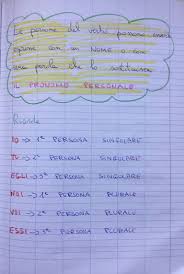 Le persone del verbo possono essere
espresse con un NOME o con
una parola che lo sostituisce
IL PRONOME PERSONALE
Ricorda
IO → 1ª PERSONA SINGOLARE
TU → 2ª PERSONA SINGOLARE
EGLI → 3ª PERSONA SINGOLARE
NOI → 1ª PERSONA PLURALE
VOI → 2ª PERSONA PLURALE
ESSI → 3ª PERSONA PLURALE